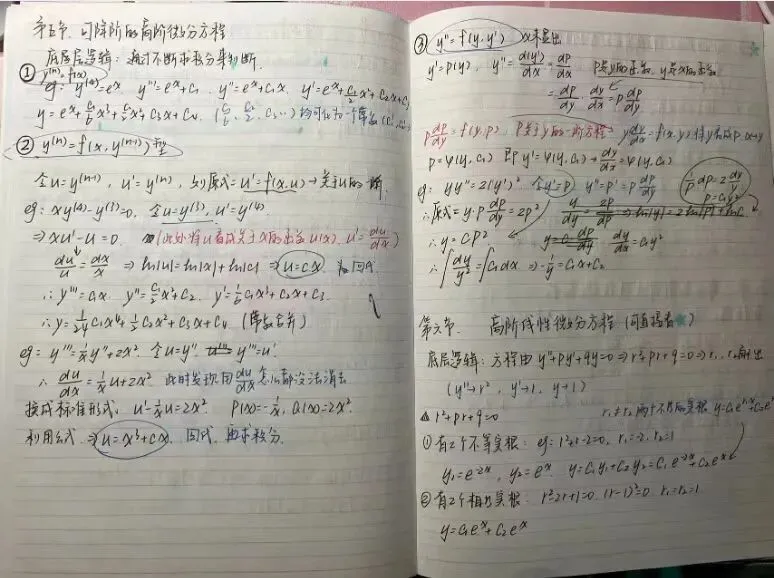 第五节 可降阶的高阶微分方程
底层逻辑：通过不断求积分来判断.
① y⁽ⁿ⁾=f(x)
eg: y⁽⁴⁾=eˣ y'''=eˣ+C₁ y''=eˣ+C₁x y'=eˣ+C₁/2 x²+C₂x+C₃
y=eˣ+C₁/6 x³+C₂/2 x²+C₃x+C₄ (C₁/6、C₂/2、C₃…)均可化为一个常数
② y⁽ⁿ⁾=f(x,y⁽ⁿ⁻¹⁾)型
令u=y⁽ⁿ⁻¹⁾, u'=y⁽ⁿ⁾, 则原式=u'=f(x,u)→关于u的一阶
eg: xy⁽⁴⁾-y⁽³⁾=0, 令u=y⁽³⁾, u'=y⁽⁴⁾
⇒xu'-u=0 (此处将u看成关于x的函数u(x), u'=du/dx)
du/u=dx/x ⇒ln|u|=ln|x|+ln|C| ⇒u=Cx 回代
∴y'''=C₁x y''=C₁/2 x²+C₂ y'=1/6 C₁x³+C₂x+C₃
∴y=1/24 C₁x⁴+1/2 C₂x²+C₃x+C₄ (常数合并)
eg: y'''=1/x y''+2x² 令u=y'' y'''=u'
∴ du/dx=1/x u+2x² 此时发现用du/dx怎么都没法消去
换成标准形式, u'-1/x u=2x² P(x)=-1/x, Q(x)=2x²
利用公式 ⇒u=x³+Cx 回代, 再求积分
③ y''=f(y,y') x未显出
y'=p(y), y''=d(y')/dx=dp/dx p是y的函数, y是x的函数
=dp/dy·dy/dx=p dp/dy
p dp/dy=f(y,p), p关于y的一阶方程
p=ψ(y,C₁) 即y'=ψ(y,C₁)→dy/dx=ψ(y,C₁)
eg: yy''=2(y')² 令y'=p y''=p'=p dp/dy 1/p dp=2 dy/y
p=C₁y²
∴原式=y·p dp/dy=2p²
∴y=Cp² dy/dx=C₁y²
∴∫dy/y²=∫C₁dx ⇒-1/y=C₁x+C₂
第六节 高阶线性微分方程 (可直接看)
底层逻辑: 方程由y''+py'+qy=0⇒r²+pr+q=0⇒r₁、r₂解出
(y''→r², y'→r, y→1)
△ r²+pr+q=0 r₁≠r₂两个不同的实根
① 有2个不等实根: eg: r²+r-2=0, r₁=-2, r₂=1
y₁=e⁻²ˣ, y₂=eˣ y=C₁y₁+C₂y₂=C₁e⁻²ˣ+C₂eˣ
② 有2个相同实根: r²-2r+1=0 (r-1)²=0 r₁=r₂=1
y=C₁eˣ+C₂eˣ